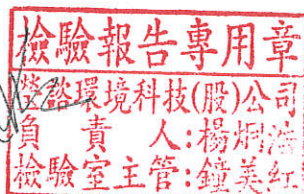 檢驗報告專用章
瑩諮環境科技(股)公司
負責人:楊炯
檢驗室主管:鐘美